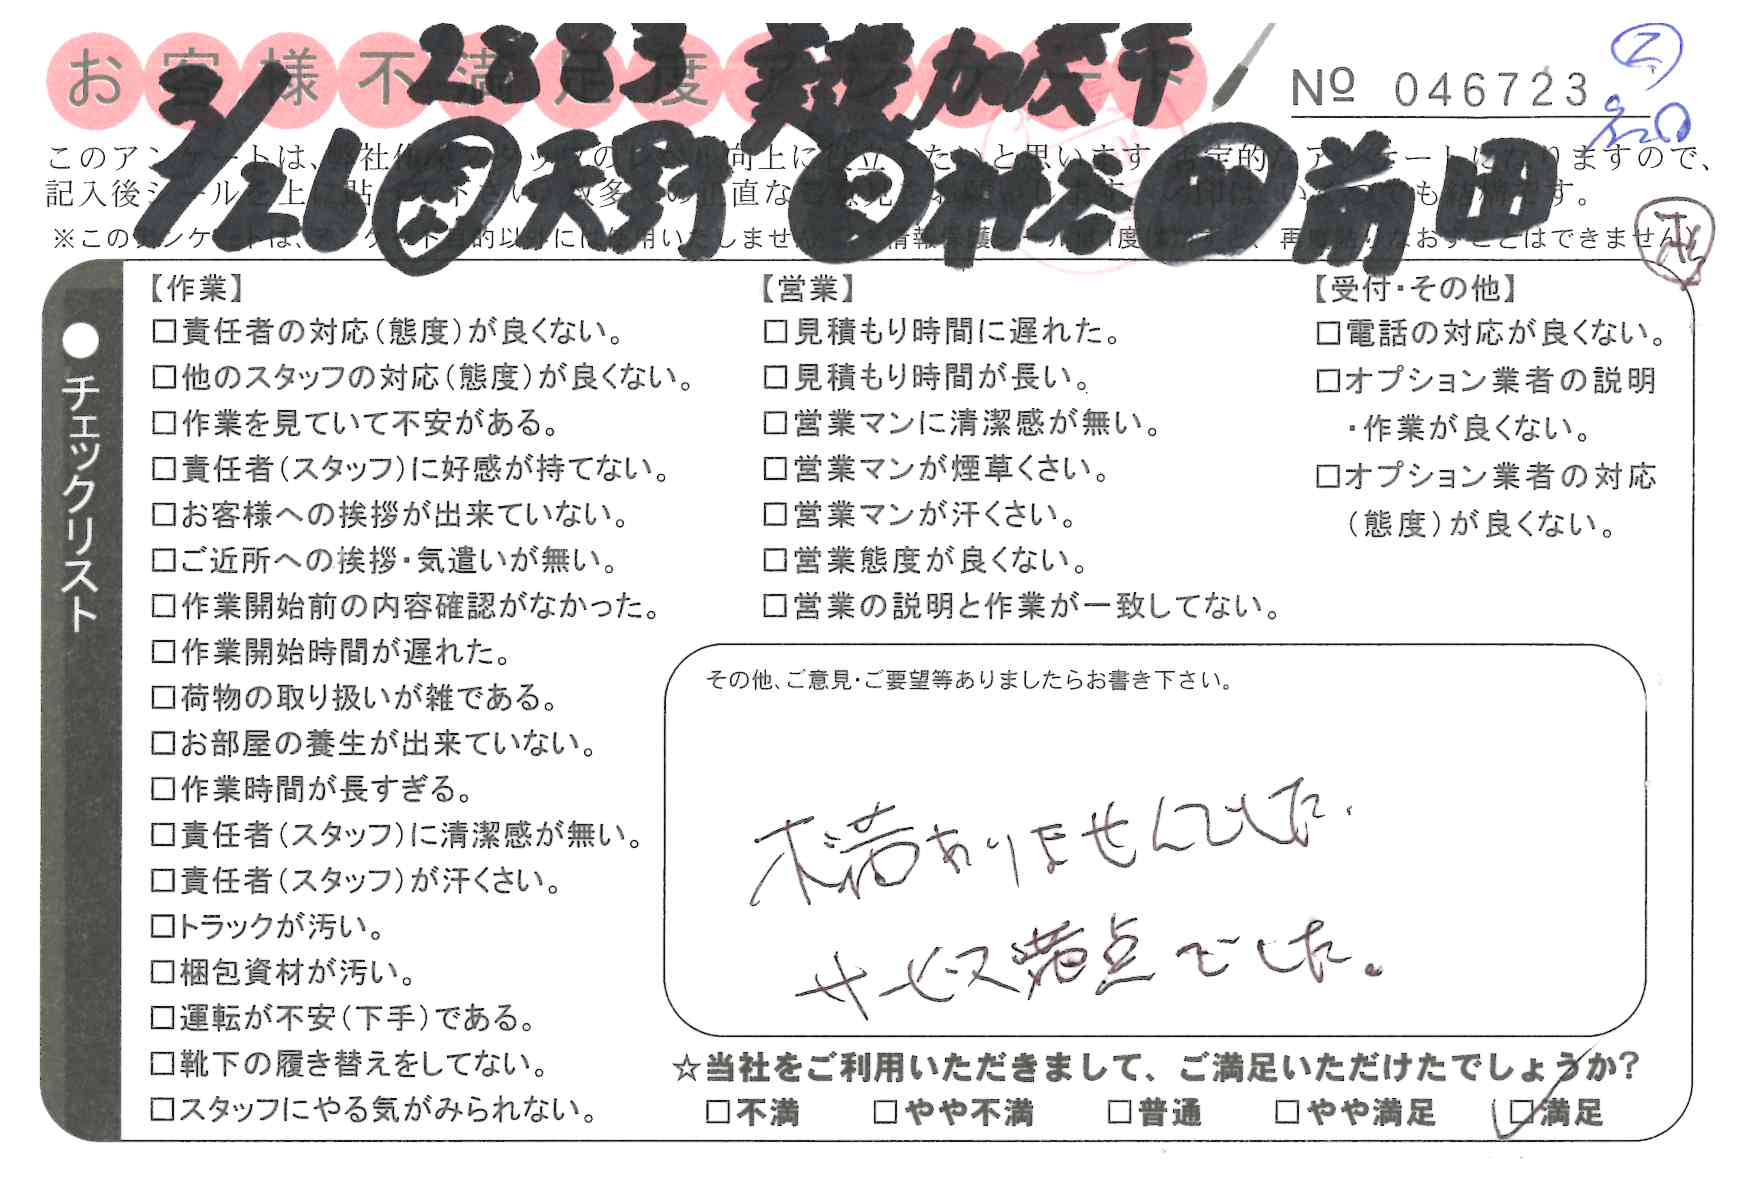 お客様不満足度アンケート
2883 美濃加茂市
No 046723
3/26 天野 神谷 前田
このアンケートは、
記入後シールを上に
※このアンケートは、
●チェックリスト
【作業】
□責任者の対応(態度)が良くない。
□他のスタッフの対応(態度)が良くない。
□作業を見ていて不安がある。
□責任者(スタッフ)に好感が持てない。
□お客様への挨拶が出来ていない。
□ご近所への挨拶・気遣いが無い。
□作業開始前の内容確認がなかった。
□作業開始時間が遅れた。
□荷物の取り扱いが雑である。
□お部屋の養生が出来ていない。
□作業時間が長すぎる。
□責任者(スタッフ)に清潔感が無い。
□責任者(スタッフ)が汗くさい。
□トラックが汚い。
□梱包資材が汚い。
□運転が不安(下手)である。
□靴下の履き替えをしてない。
□スタッフにやる気がみられない。
【営業】
□見積もり時間に遅れた。
□見積もり時間が長い。
□営業マンに清潔感が無い。
□営業マンが煙草くさい。
□営業マンが汗くさい。
□営業態度が良くない。
□営業の説明と作業が一致してない。
【受付・その他】
□電話の対応が良くない。
□オプション業者の説明
・作業が良くない。
□オプション業者の対応
(態度)が良くない。
その他、ご意見・ご要望等ありましたらお書き下さい。
不満ありませんでした.
サービス満点でした。
☆当社をご利用いただきまして、ご満足いただけたでしょうか?
□不満 □やや不満 □普通 □やや満足 □満足